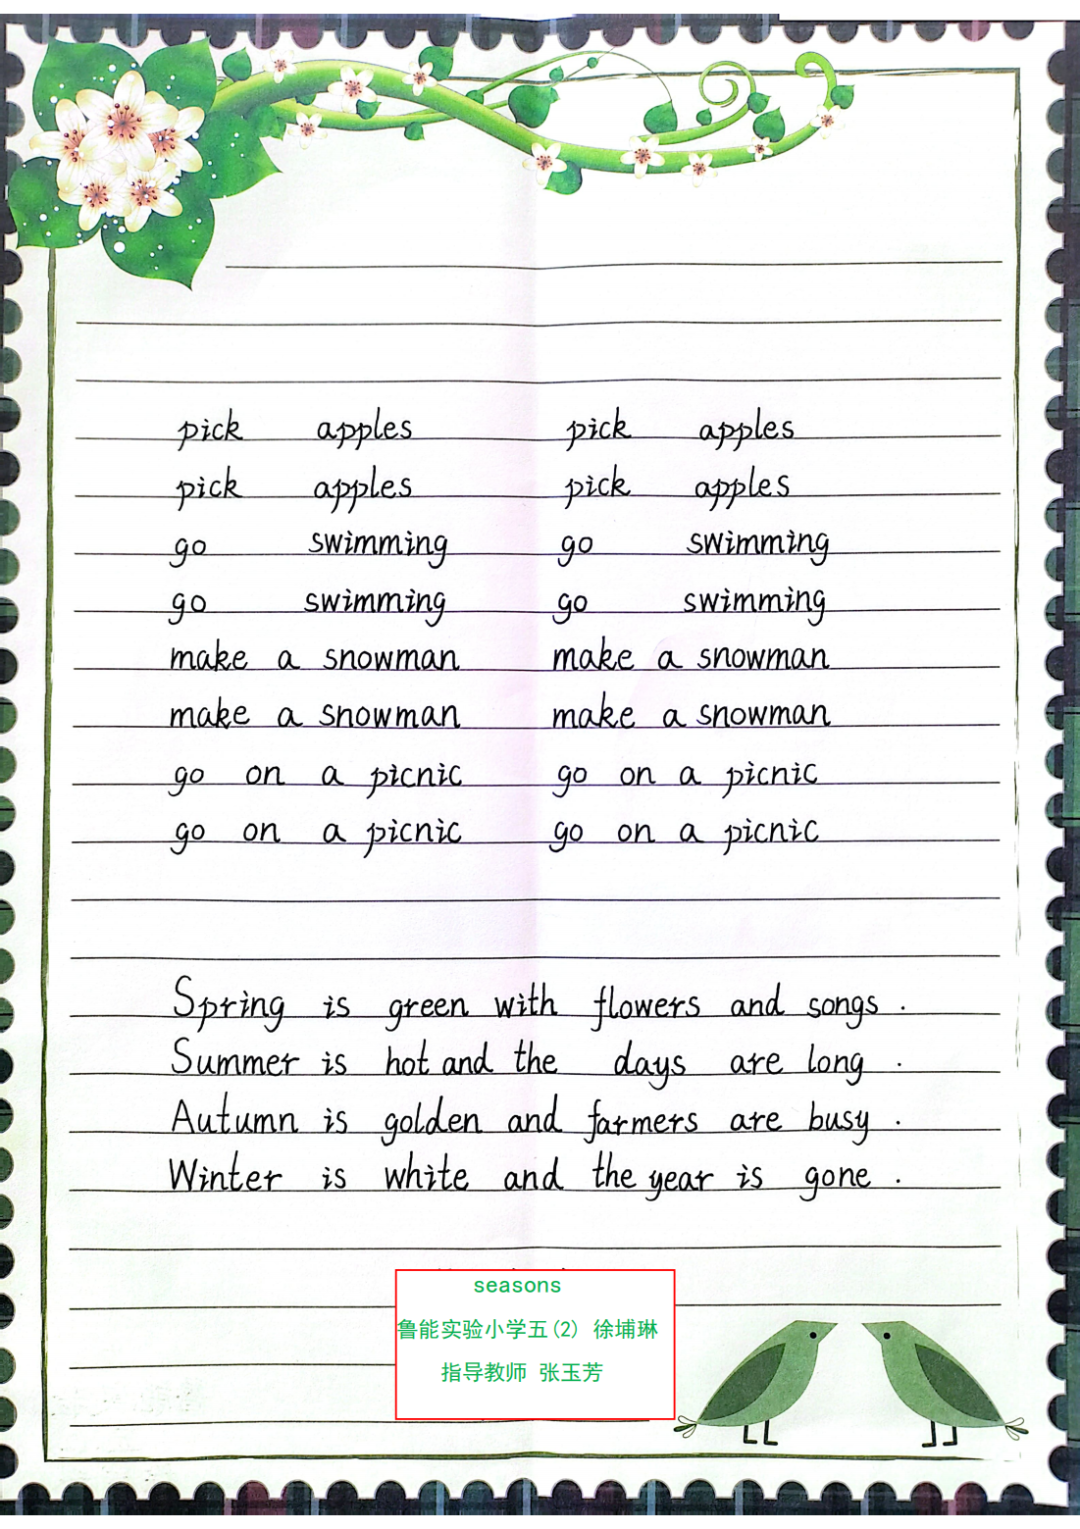 pick apples pick apples
pick apples pick apples
go swimming go swimming
go swimming go swimming
make a snowman make a snowman
make a snowman make a snowman
go on a picnic go on a picnic
go on a picnic go on a picnic
Spring is green with flowers and songs.
Summer is hot and the days are long.
Autumn is golden and farmers are busy.
Winter is white and the year is gone.
seasons
鲁能实验小学五(2) 徐埔琳
指导教师 张玉芳